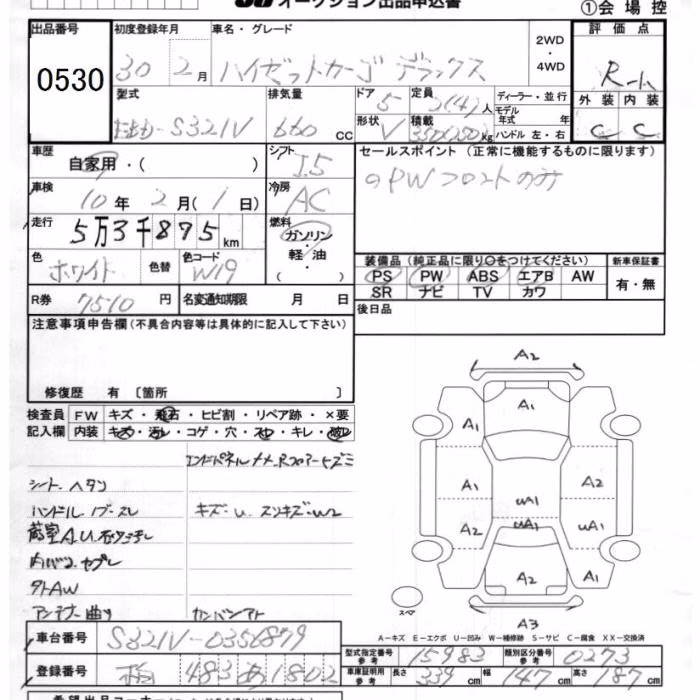 オークション出品申込書 ①会場控
出品番号 初度登録年月 車名・グレード 2WD・4WD 評価点
0530 30年 2月 ハイゼットカーゴ デラックス R-1
型式 排気量 ドア 5 定員 2(4)人 ディーラー・並行 外装 内装
S321V 660 CC 形状 V 積載 350(250)kg モデル年式 年 ハンドル 左・右 C C
車歴 自家用・( ) シフト I5 セールスポイント(正常に機能するものに限ります)
車検 10年 2月(1日) 冷房 AC ◎PWフロントのみ
走行 5万3千875km 燃料 ガソリン・軽油( )
色 ホワイト 色替 色コード W19 装備品(純正品に限り○をつけてください) 新車保証書
PS PW ABS エアB AW 有・無
SR ナビ TV カワ
R券 7510円 名変通知期限 月 日 後日品
注意事項申告欄(不具合内容等は具体的に記入して下さい)
修復歴 有 〔箇所 〕
検査員 FW キズ・飛石・ヒビ割・リペア跡・×要
記入欄 内装 キズ・汚レ・コゲ・穴・スレ・キレ・破レ
エンドパネルナメ、Rフロアーキズミ
シート、ヘタリ
ハンドル、ノブ・スレ
キズ・U、スリキズ・W2
内バリコセプレ
外AW
アンテナ曲り カンバンアト
A2
A1
A1
A1 UA1 A2
A2 UA1 UA1
A2 A1
スペア
A3
A-キズ E-エクボ U-凹み W-補修跡 S-サビ C-腐食 XX-交換済
車台番号 S321V-0356879 型式指定番号 参考 15983 類別区分番号 参考 0273
登録番号 483 あ 1802 車庫証明用 参考 長さ 339cm 幅 147cm 高さ 187cm